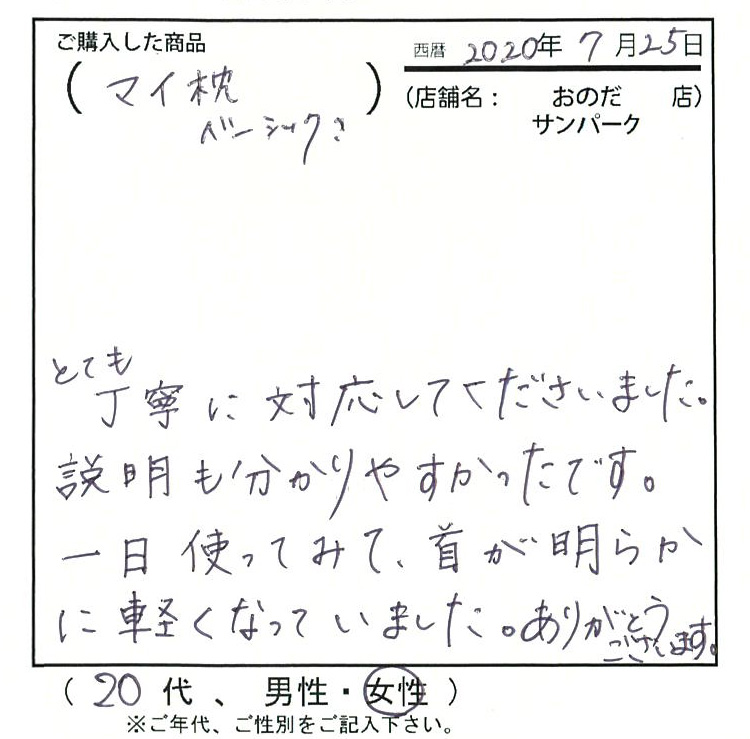 ご購入した商品
西暦 2020年 7月25日
(マイ枕
ベーシック)
(店舗名: おのだ 店)
サンパーク
とても
丁寧に対応してくださいました。
説明も分かりやすかったです。
一日使ってみて、首が明らか
に軽くなっていました。ありがとう
ございます。
(20代、男性・女性)
※ご年代、ご性別をご記入下さい。